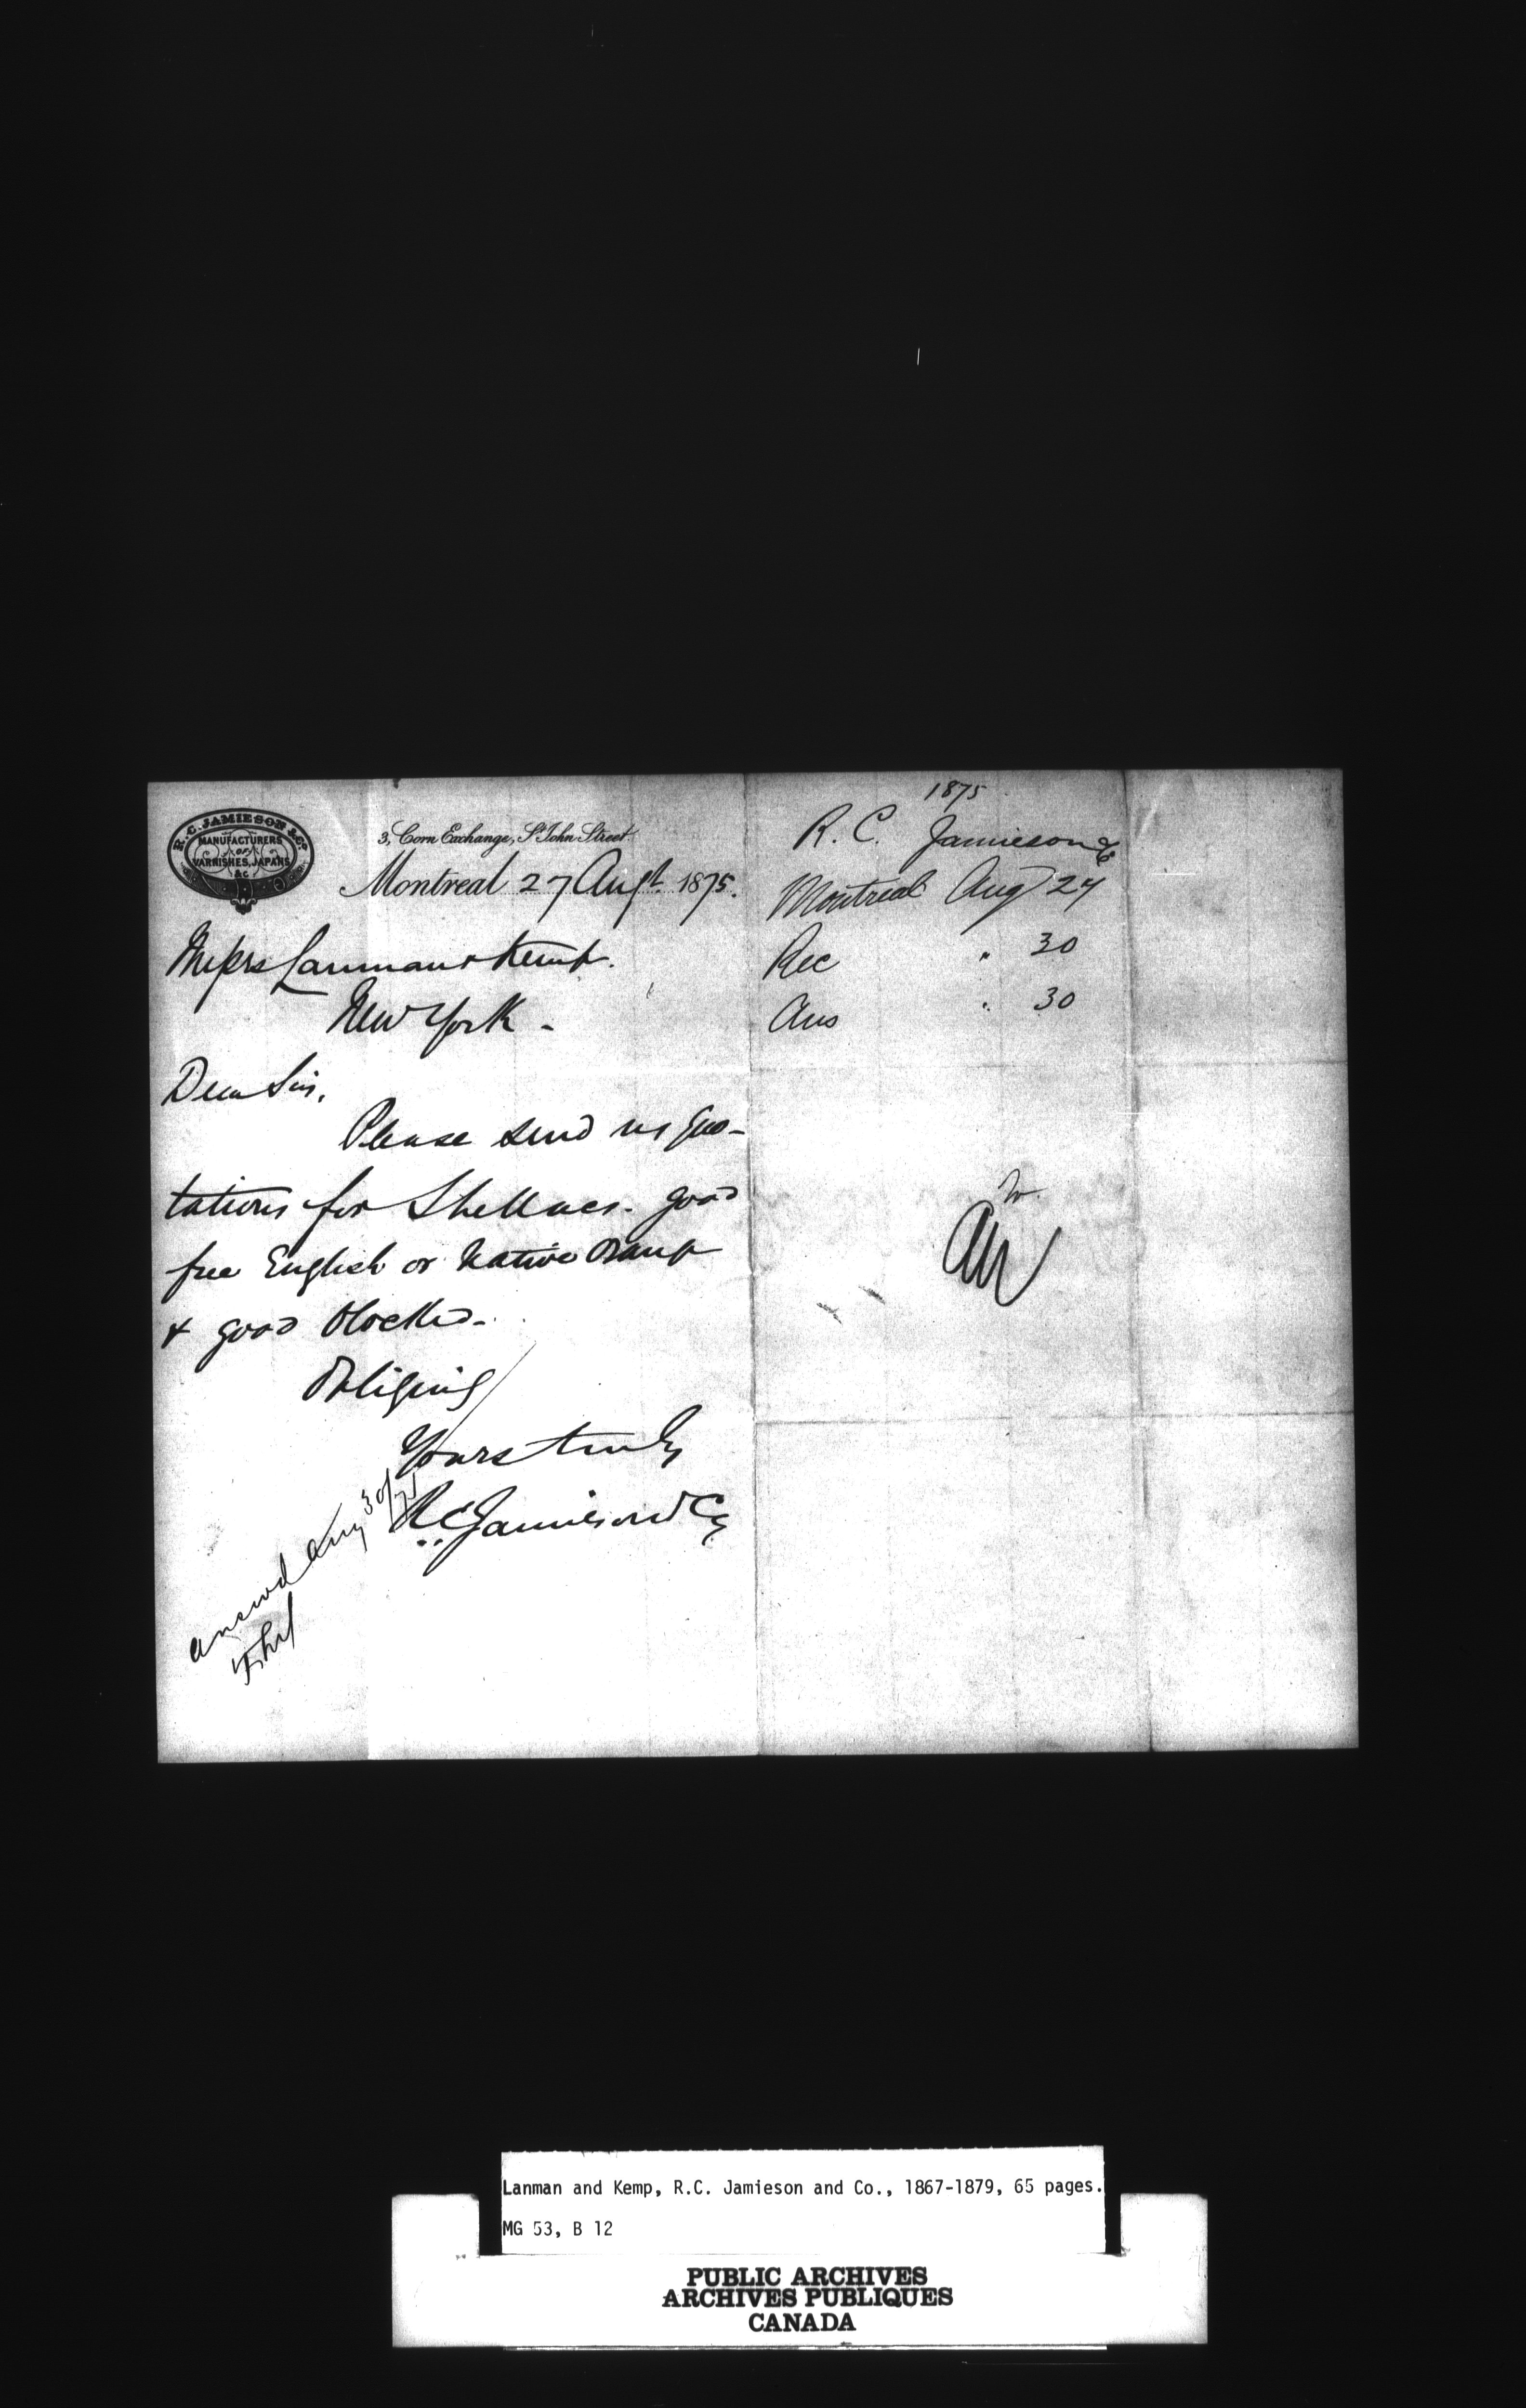 R. C. JAMIESON & CO.
MANUFACTURERS
OF
VARNISHES, JAPANS
&C
3, Corn Exchange, St. John Street.
Montreal 27 Augt 1875.
Messrs Lanman & Kemp.
New York -
Dear Sirs,
Please send us quo-
tations for Shellacs. good
free English or Native Orange
& good blocked -
Obliging
Yours truly
R.C. Jamieson & Co
answd Aug 30/75
1875
R. C. Jamieson & C
Montreal Aug 27
Rec " 30
Ans " 30
Lanman and Kemp, R.C. Jamieson and Co., 1867-1879, 65 pages.
MG 53, B 12
PUBLIC ARCHIVES
ARCHIVES PUBLIQUES
CANADA